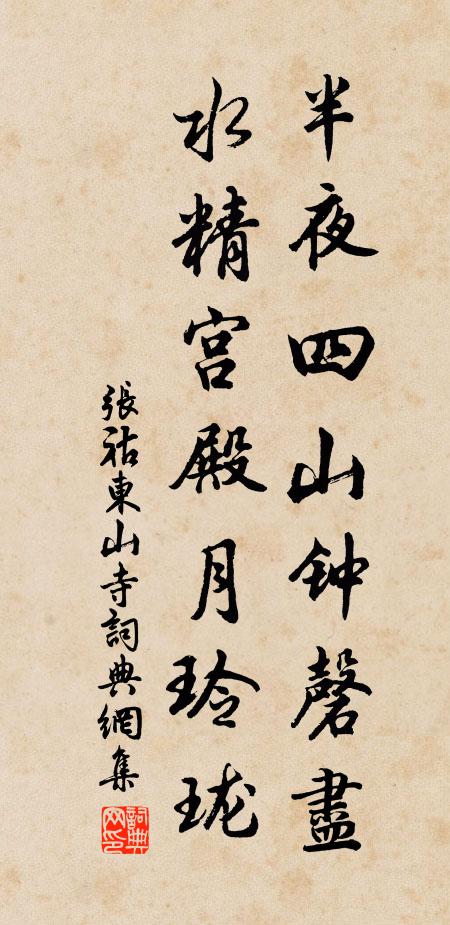 半夜四山钟磬盡
水精宫殿月玲珑
張祜東山寺詞典網集
詞典網印